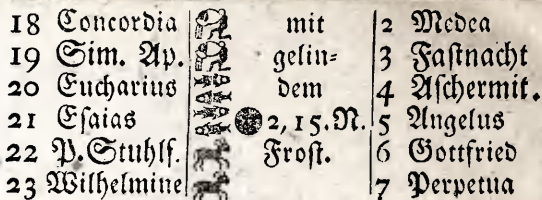 18 Concordia mit 2 Medea
19 Sim. Ap. gelin= 3 Faſtnacht
20 Euchariuſ dem 4 Aſchermit.
21 Eſaias 2, 15. N. 5 Angelus
22 P. Stuhlf. Froſt. 6 Gottfried
23 Wilhelmine 7 Perpetua